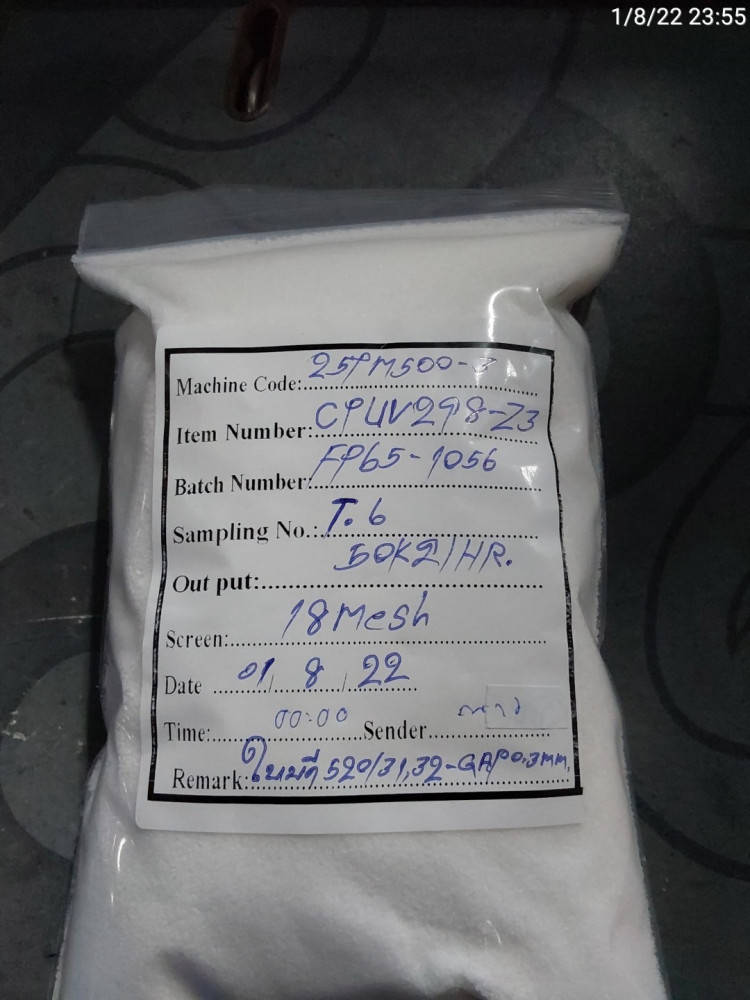 1/8/22 23:55
Machine Code: 25PM500-3
Item Number: CPUV298-Z3
Batch Number: FP65-1056
Sampling No.: T.6
Out put: 50Kg/HR.
Screen: 18 Mesh
Date 01/ 8 / 22
Time: 00:00 Sender
Remark: ใบมีด 520/31,32-GAP0.3mm.